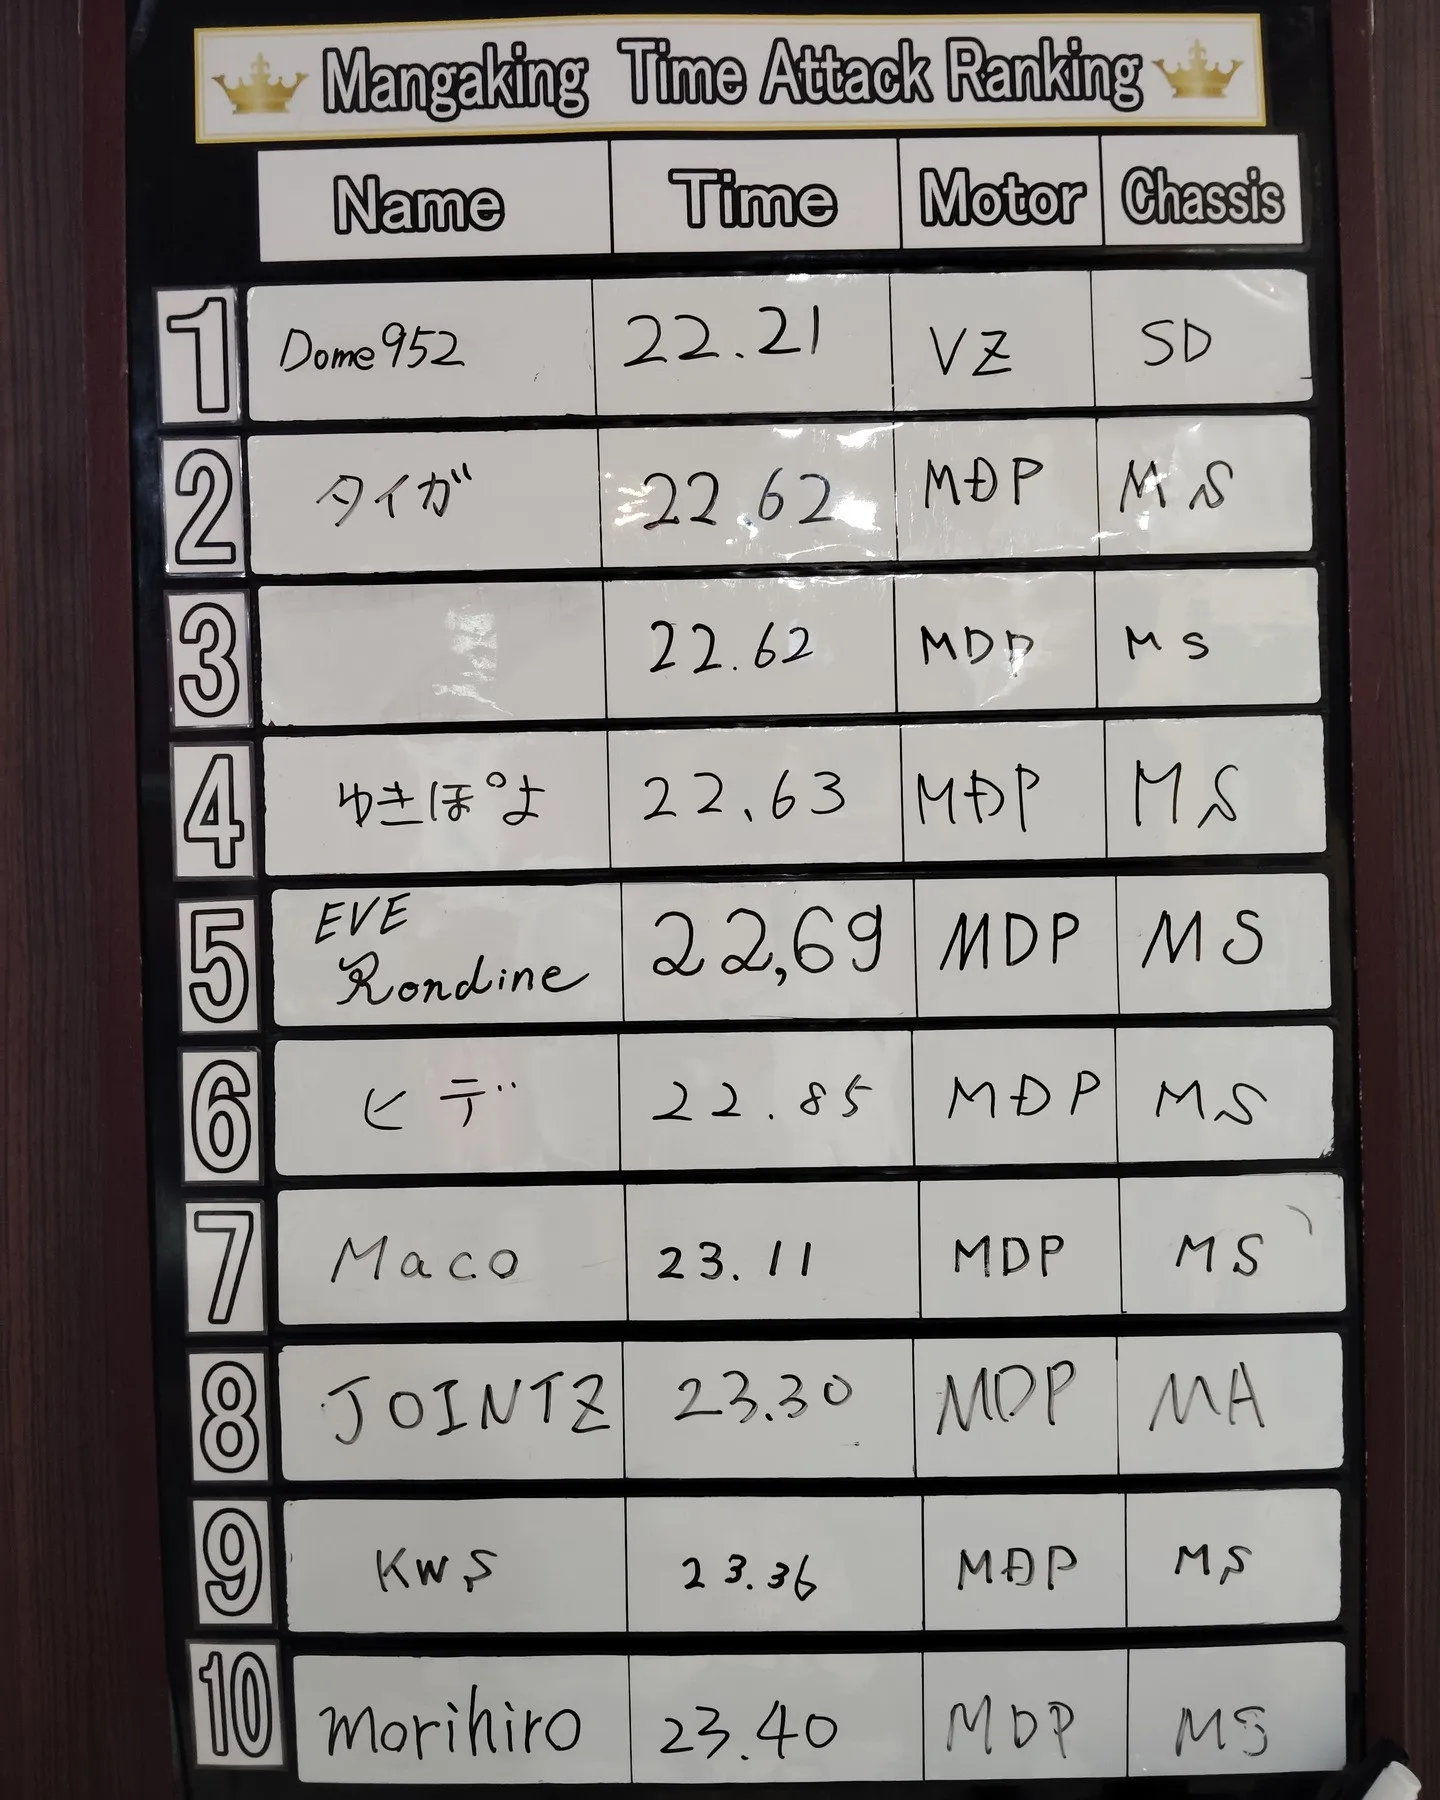 Mangaking Time Attack Ranking
Name Time Motor Chassis
1 Dome952 22.21 VZ SD
2 タイガ 22.62 MDP MS
3 22.62 MDP MS
4 ゆきぽよ 22.63 MDP MS
5 EVE Rondine 22,69 MDP MS
6 ヒデ 22.85 MDP MS
7 Maco 23.11 MDP MS
8 JOINTZ 23.30 MDP MA
9 KWS 23.36 MDP MS
10 morihiro 23.40 MDP MS